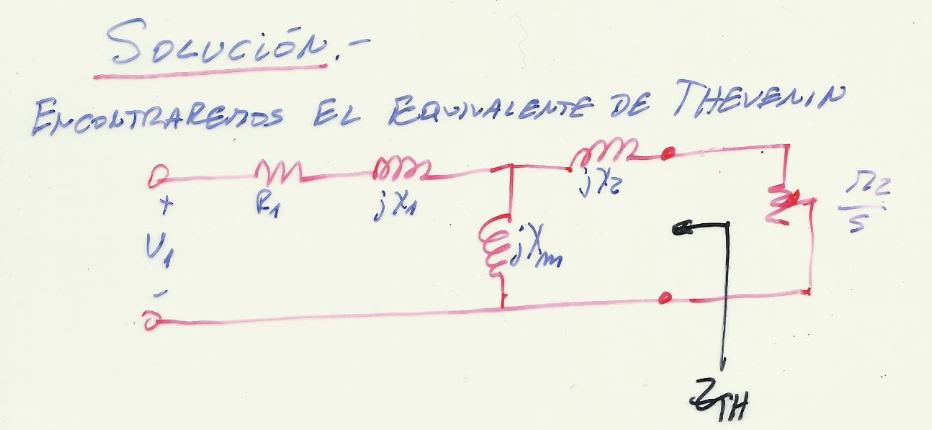 SOLUCIÓN.-
ENCONTRAREMOS EL EQUIVALENTE DE THEVENIN
R1
jX1
jX2
r2/s
+
V1
-
jXm
ZTH